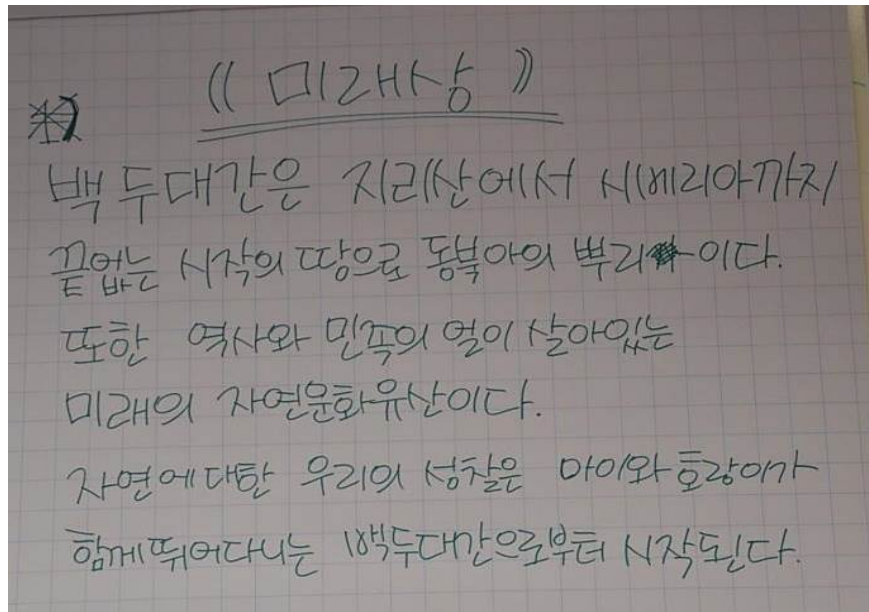 《 미래상 》
백두대간은 지리산에서 시베리아까지
끝없는 시작의 땅으로 동북아의 뿌리이다.
또한 역사와 민족의 얼이 살아있는
미래의 자연문화유산이다.
자연에대한 우리의 성찰은 아이와 호랑이가
함께뛰어다니는 백두대간으로부터 시작된다.